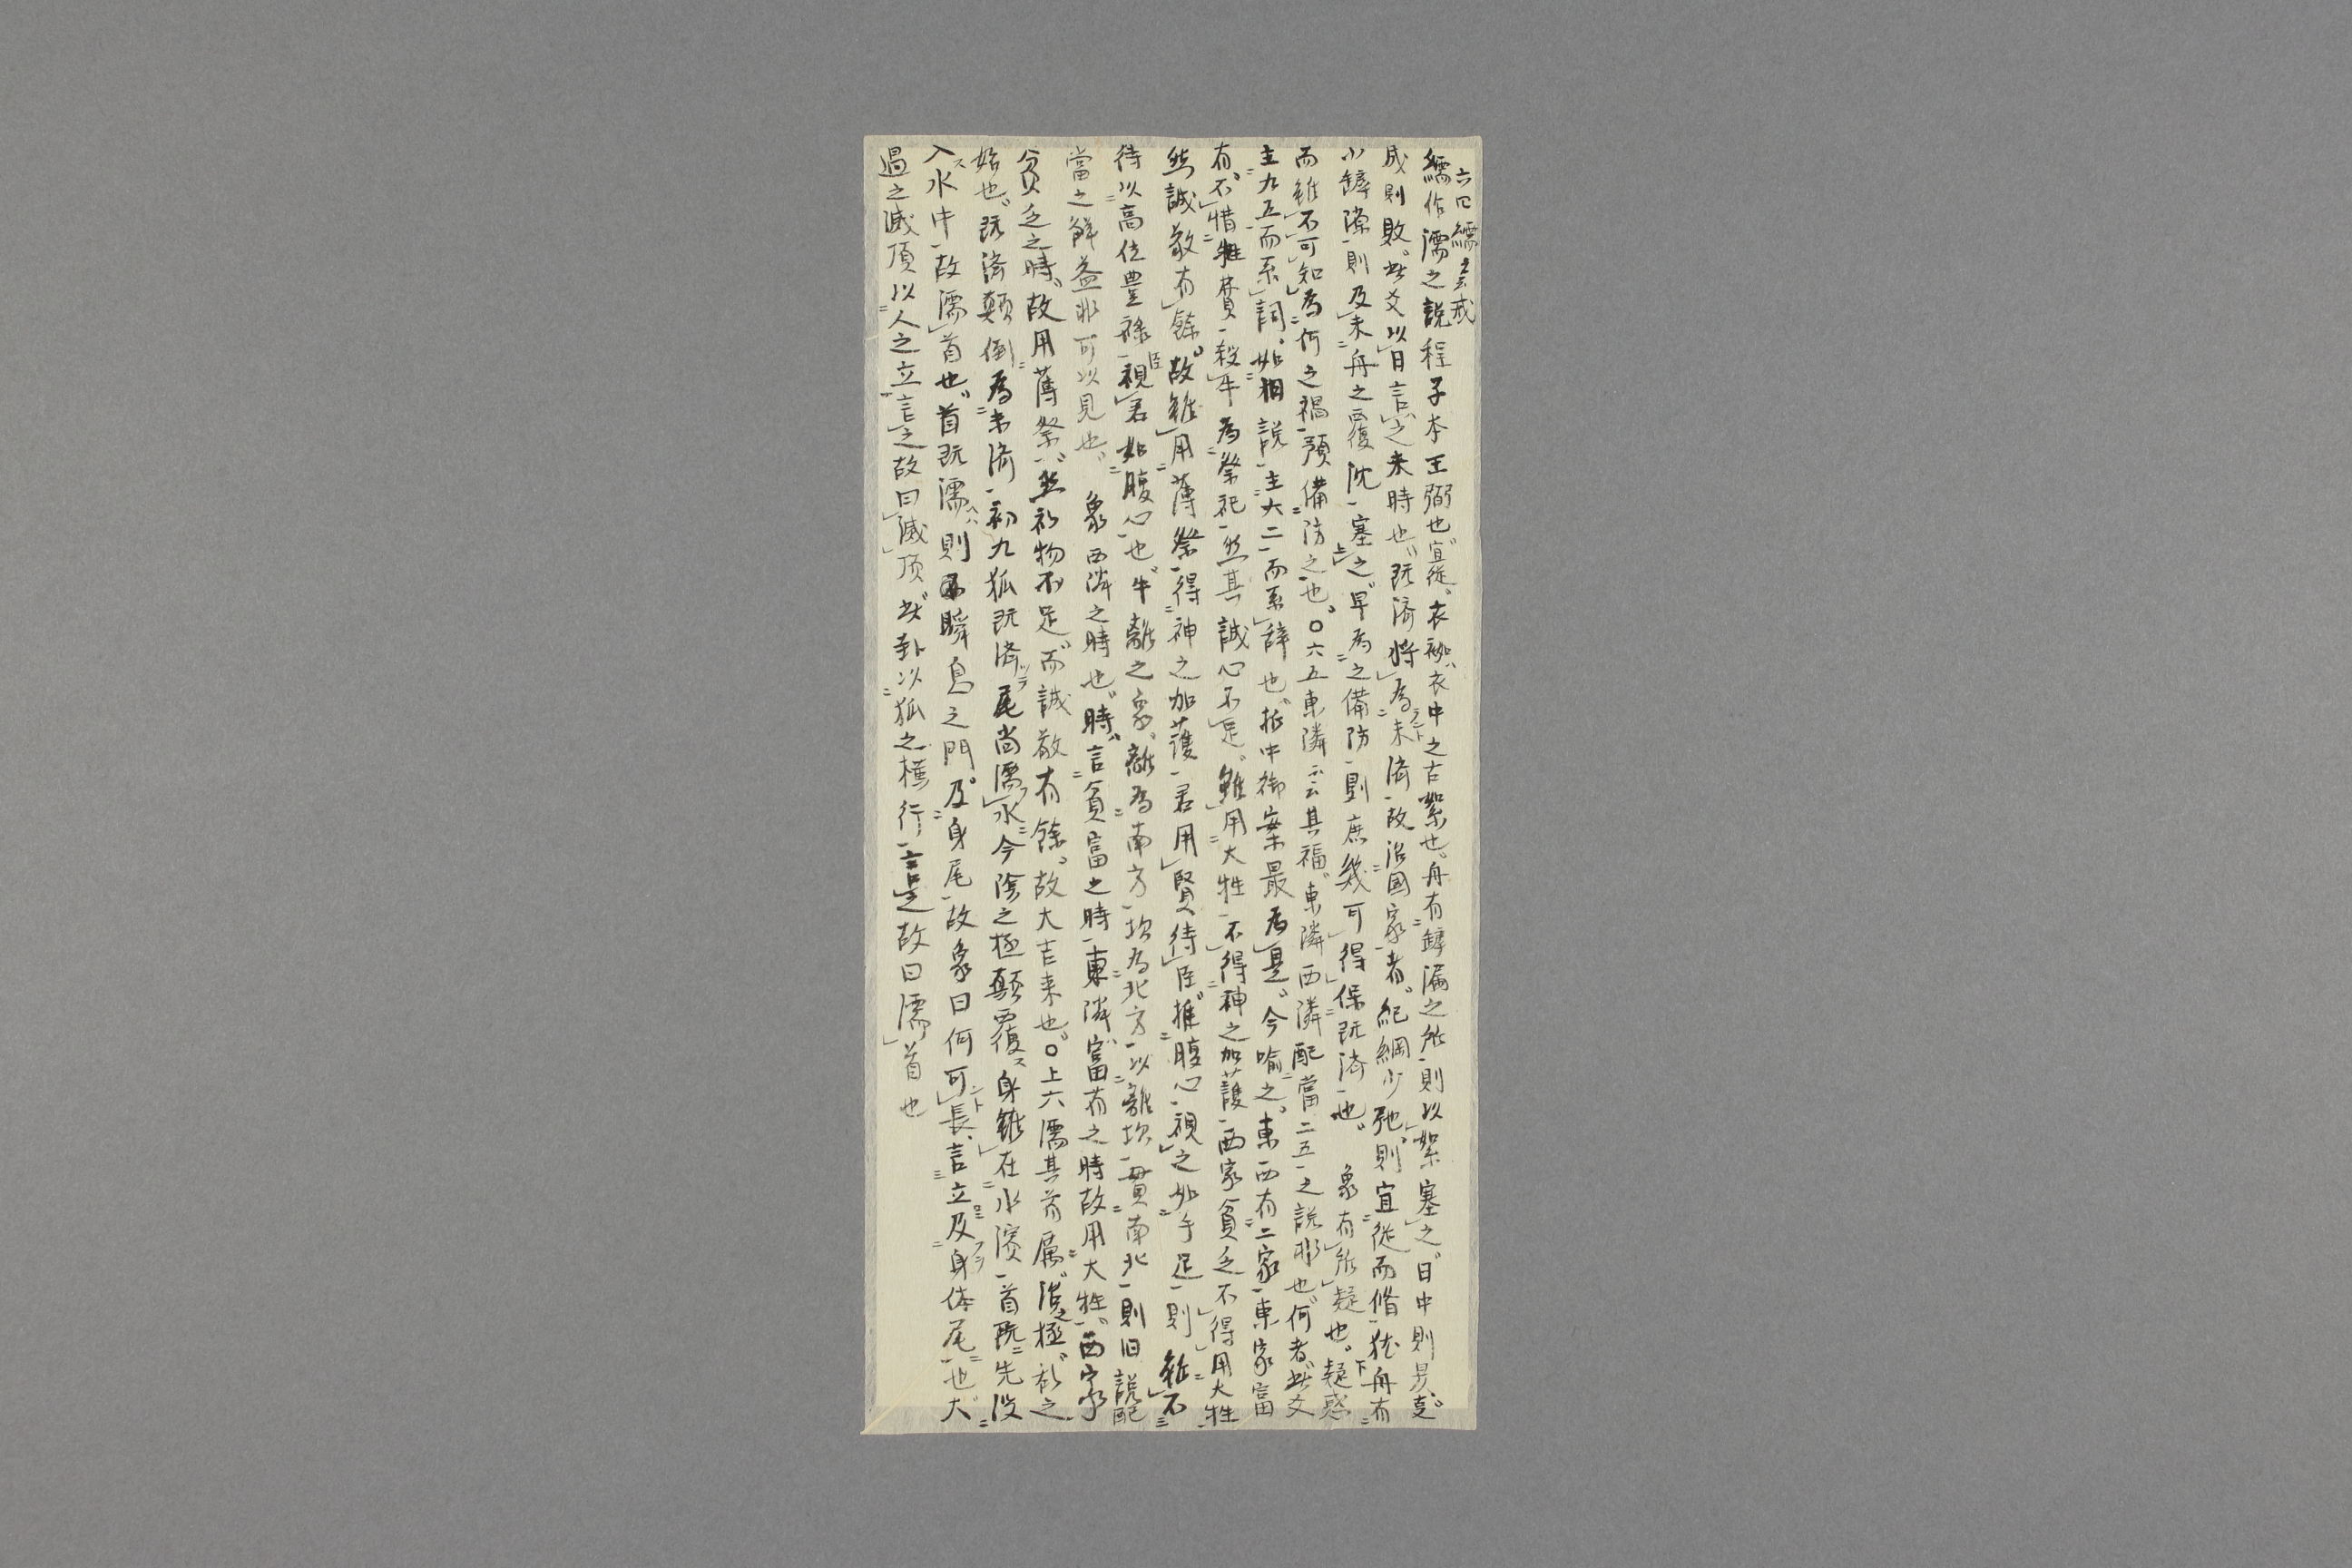 六四繻云云戒
繻作濡之説程子本王弼也宜從衣袽衣中之古絮也舟有罅漏之所則以絮塞之日中則昃
成則敗此爻以日言之未時也既済将為未済故治国家者紀綱少弛則宜從而脩猶舟有
小罅隙則及未舟之覆沈塞之早為之備防則庶幾可得保既済也 象有所疑也疑惑
而雖不可知為何之禍預備防之也○六五東隣云云其福東隣西隣配當二五之説非也何者此爻
主九五而系詞如旧説主六二而系辞也折中御案最為是今喩之東西有二家東家富
有不惜犠費殺牛為祭祀然其誠心不足雖用大牲不得神之加護西家貧乏不得用大牲
然誠敬有餘故雖用薄祭得神之加護君用賢待臣推腹心視之如手足則雖不
待以高位豊禄臣視君如腹心也牛離之象離為南方坎為北方以離坎毋貫南北則旧説配
當之鮮益非可以見也 象西隣之時也時言貧富之時東隣富有之時故用大牲西家
貧乏之時故用薄祭然礼物不足而誠敬有餘故大吉来也○上六濡其首厲済之極於之
始也既済顛倒為未済初九狐既済尾尚濡水今陰之極顛覆身雖在水濱首既先没
入水中故濡首也首既濡則不瞬息之門及身尾故象曰何可長言立及身体尾也大
過之滅頂以人之立言之故曰滅頂此卦以狐之横行言之故曰濡首也